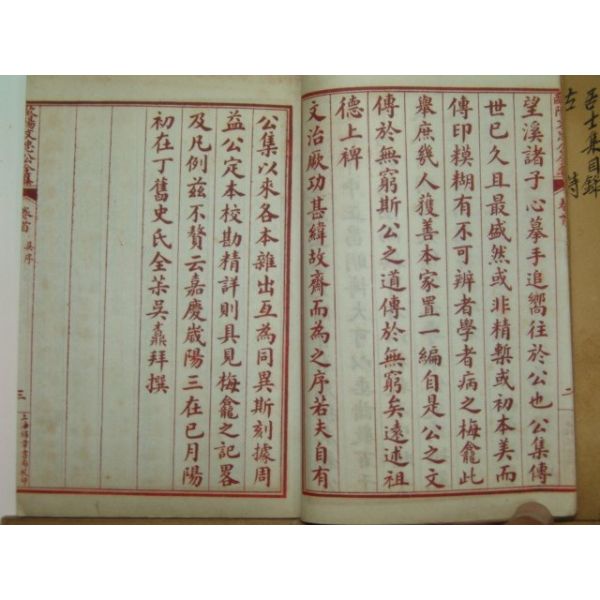 望溪諸子心摹手追嚮往於公也公集傳
世已久且最盛然或非精槧或初本美而
傳印模糊有不可辨者學者病之梅龕此
舉庶幾人獲善本家置一編自是公之文
傳於無窮斯公之道傳於無窮矣遠述祖
德上裨
文治厥功甚緯故齋而為之序若夫自有
公集以來各本雜出互為同異斯刻據周
益公定本校勘精詳則具見梅龕之記畧
及凡例茲不贅云嘉慶嵗陽三在已月陽
初在丁舊史氏全茮吳鼒拜撰
歐陽文忠公全集
卷首
吳序
三
二
目錄